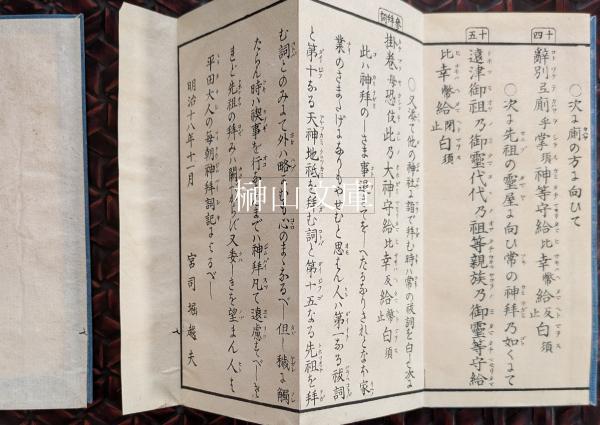 十四
○次に厠の方に向ひて
辭別弖厠乎掌須神等守給比幸幣給反止白須
○次に先祖の靈屋に向ひ常の神拜の如くにて
十五
遠津御祖乃御靈代代乃祖等親族乃御靈等守給
比幸幣給閉止白須
○又添て他の神社に詣で拜む時ハ常の祓詞を白し次に
參拜詞
掛卷母恐伎此乃大神守給比幸反給幣止白須
此ハ神拜の
業のさまたげにありもやせむと思はん人ハ第一なる祓詞
と第十なる天神地祇を拜む詞と第十五なる先祖を拜
む詞とのみよて外ハ略かむも心のまゝなるべし但し穢に觸
たらん時ハ禊事を行ふまでハ神拜凡て遠慮すべし
先祖の拜みハ
又委しきを望まん人も
平田大人の每朝神拜詞記によるべし
明治十八年十一月
宮司堀越夫
榊山文庫